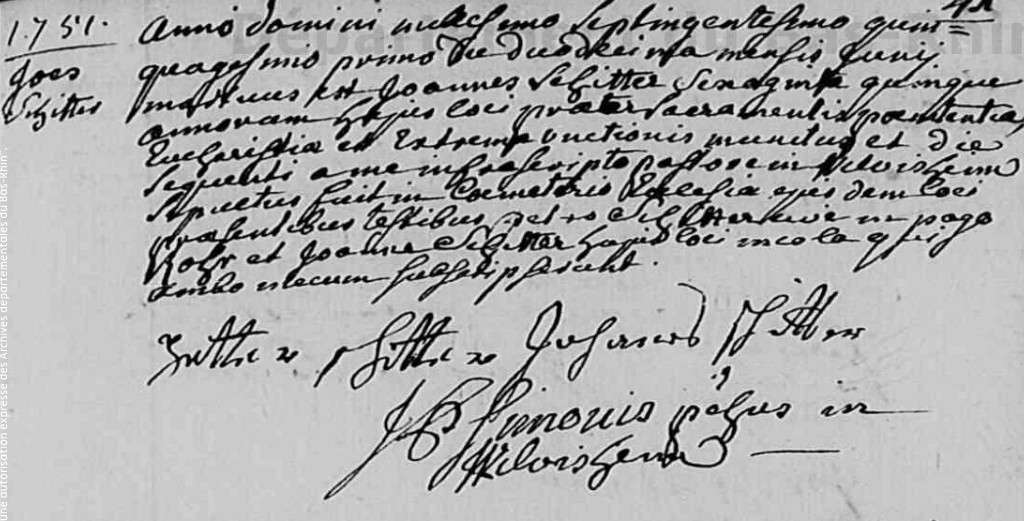 1751.
Joes
Schitter
41
Anno Domini millesimo Septingentesimo quin=
quagesimo primo die duodecima mensis Junij
mortuus est Joannes Schitter Sexaginta quinque
annorum hujus loci Sacramentis poenitentiae
Eucharistiae et Extremae unctionis munitus et die
sequenti a me infrascripto pastore in Wilvisheim
sepultus fuit in Coemeterio Ecclesiae ejusdem loci
praesentibus testibus petro Schitter cive in pago
Rohr et Joanne Schitter hujus loci incola qui
ambo mecum subscripserunt.
schitter Johanes schitter
Simonis in
Wilvisheim
une autorisation expresse des Archives départementales du Bas-Rhin".